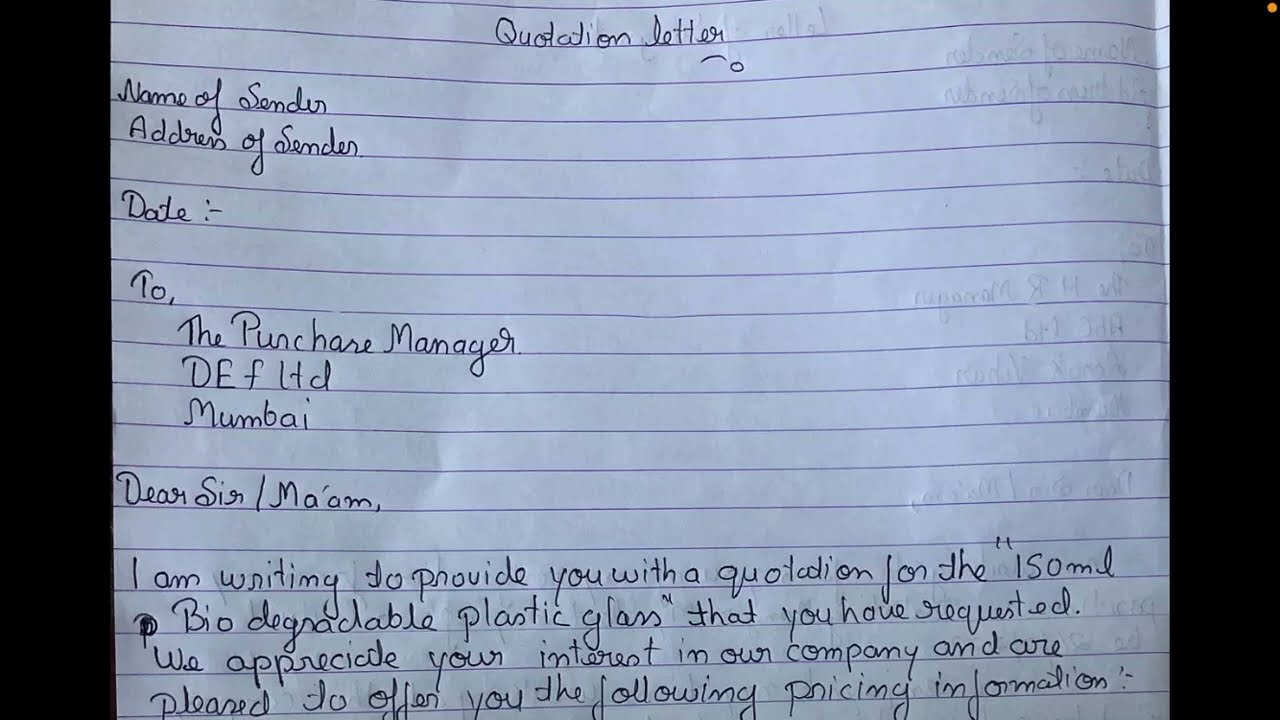 Quotation letter
Name of Sender
Address of Sender
Date :-
To,
The Purchase Manager
DEf ltd
Mumbai
Dear Sir / Ma'am,
I am writing to provide you with a quotation for the "150ml
Bio degradable plastic glass" that you have requested.
We appreciate your interest in our company and are
pleased to offer you the following pricing information :-